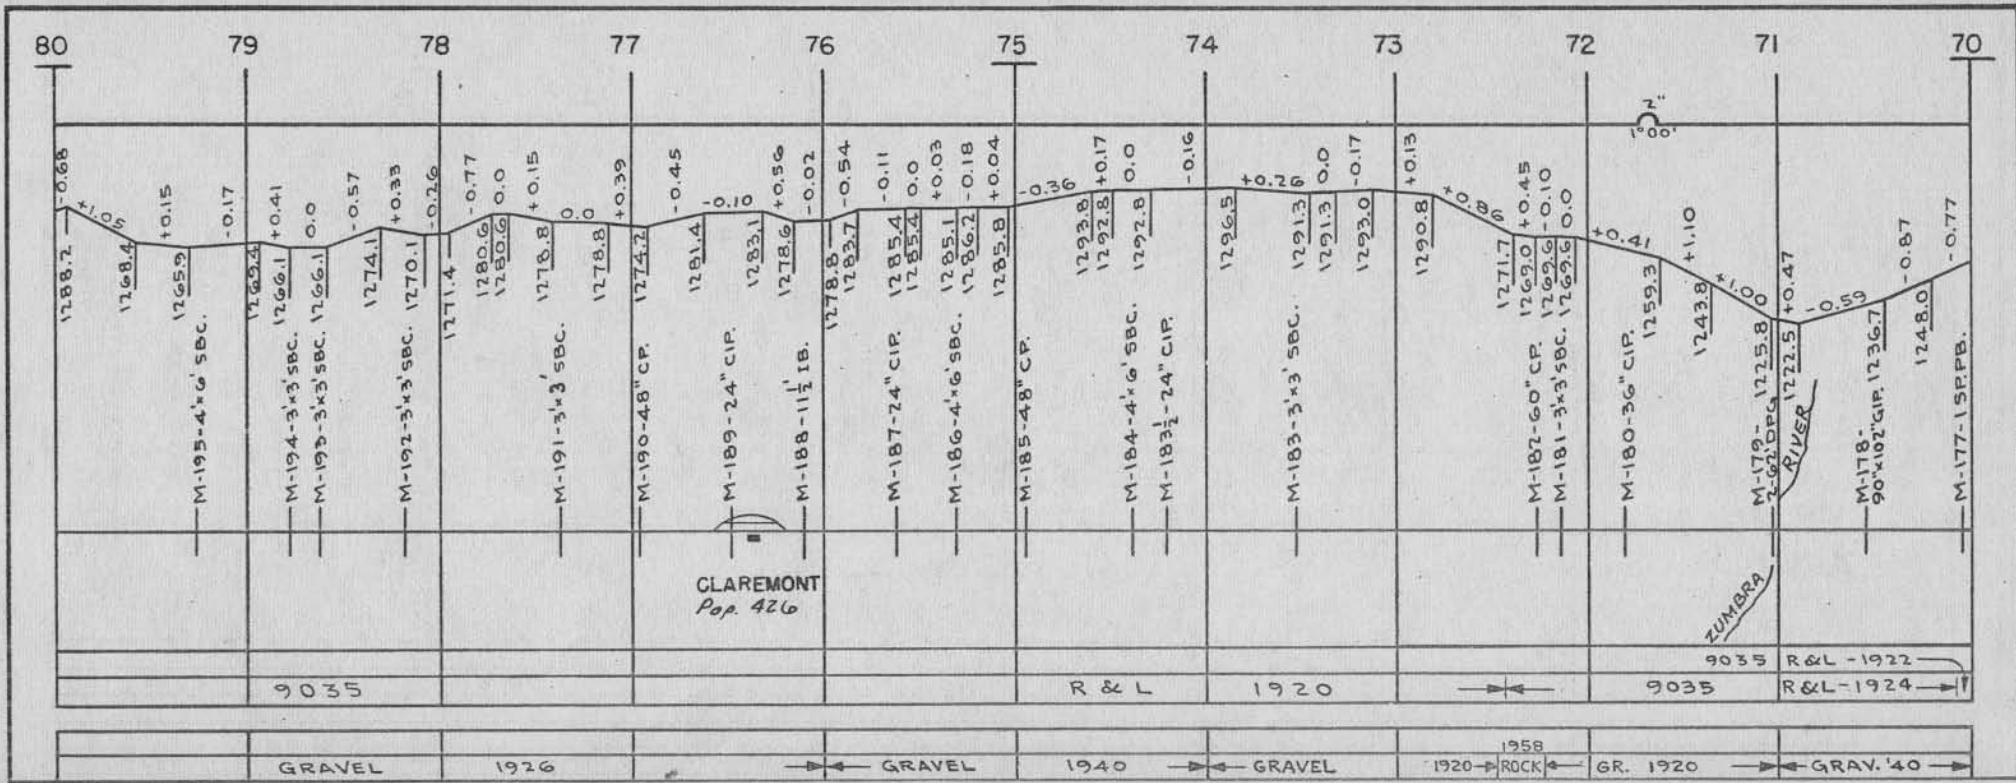 80 79 78 77 76 75 74 73 72 71 70
2"
1°00'
-0.68 +1.05 +0.15 -0.17 +0.41 0.0 -0.57 +0.33 -0.26 -0.77 0.0 +0.15 0.0 +0.39 -0.45 -0.10 +0.56 -0.02 -0.54 -0.11 0.0 +0.03 -0.18 +0.04 -0.36 +0.17 0.0 -0.16 +0.26 0.0 -0.17 +0.13 +0.86 +0.45 -0.10 0.0 +0.41 +1.10 +1.00 +0.47 -0.59 -0.87 -0.77
1288.2 1268.4 1265.9 1269.4 1266.1 1266.1 1274.1 1270.1 1271.4 1280.6 1280.6 1278.8 1278.8 1274.2 1281.4 1283.1 1278.6 1278.8 1283.7 1285.4 1285.4 1285.1 1286.2 1285.8 1293.8 1292.8 1292.8 1296.5 1291.3 1291.3 1293.0 1290.8 1271.7 1269.0 1269.6 1269.6 1259.3 1243.8 1225.8 1222.5 1236.7 1248.0
M-195-4'x6' SBC.
M-194-3'x3' SBC.
M-193-3'x3' SBC.
M-192-3'x3' SBC.
M-191-3'x3' SBC.
M-190-48" CP.
M-189-24" CIP.
M-188-11½ IB.
M-187-24" CIP.
M-186-4'x6' SBC.
M-185-48" CP.
M-184-4'x6' SBC.
M-183½-24" CIP.
M-183-3'x3' SBC.
M-182-60" CP.
M-181-3'x3' SBC.
M-180-36" CIP.
M-179-
2-62' DPG
M-178-
90"x102" GIP.
M-177-1 SP.PB.
ZUMBRA RIVER
CLAREMONT
Pop. 426
9035 R&L -1922
9035 R & L 1920 9035 R&L-1924
1958
GRAVEL 1926 GRAVEL 1940 GRAVEL 1920 ROCK GR. 1920 GRAV. '40